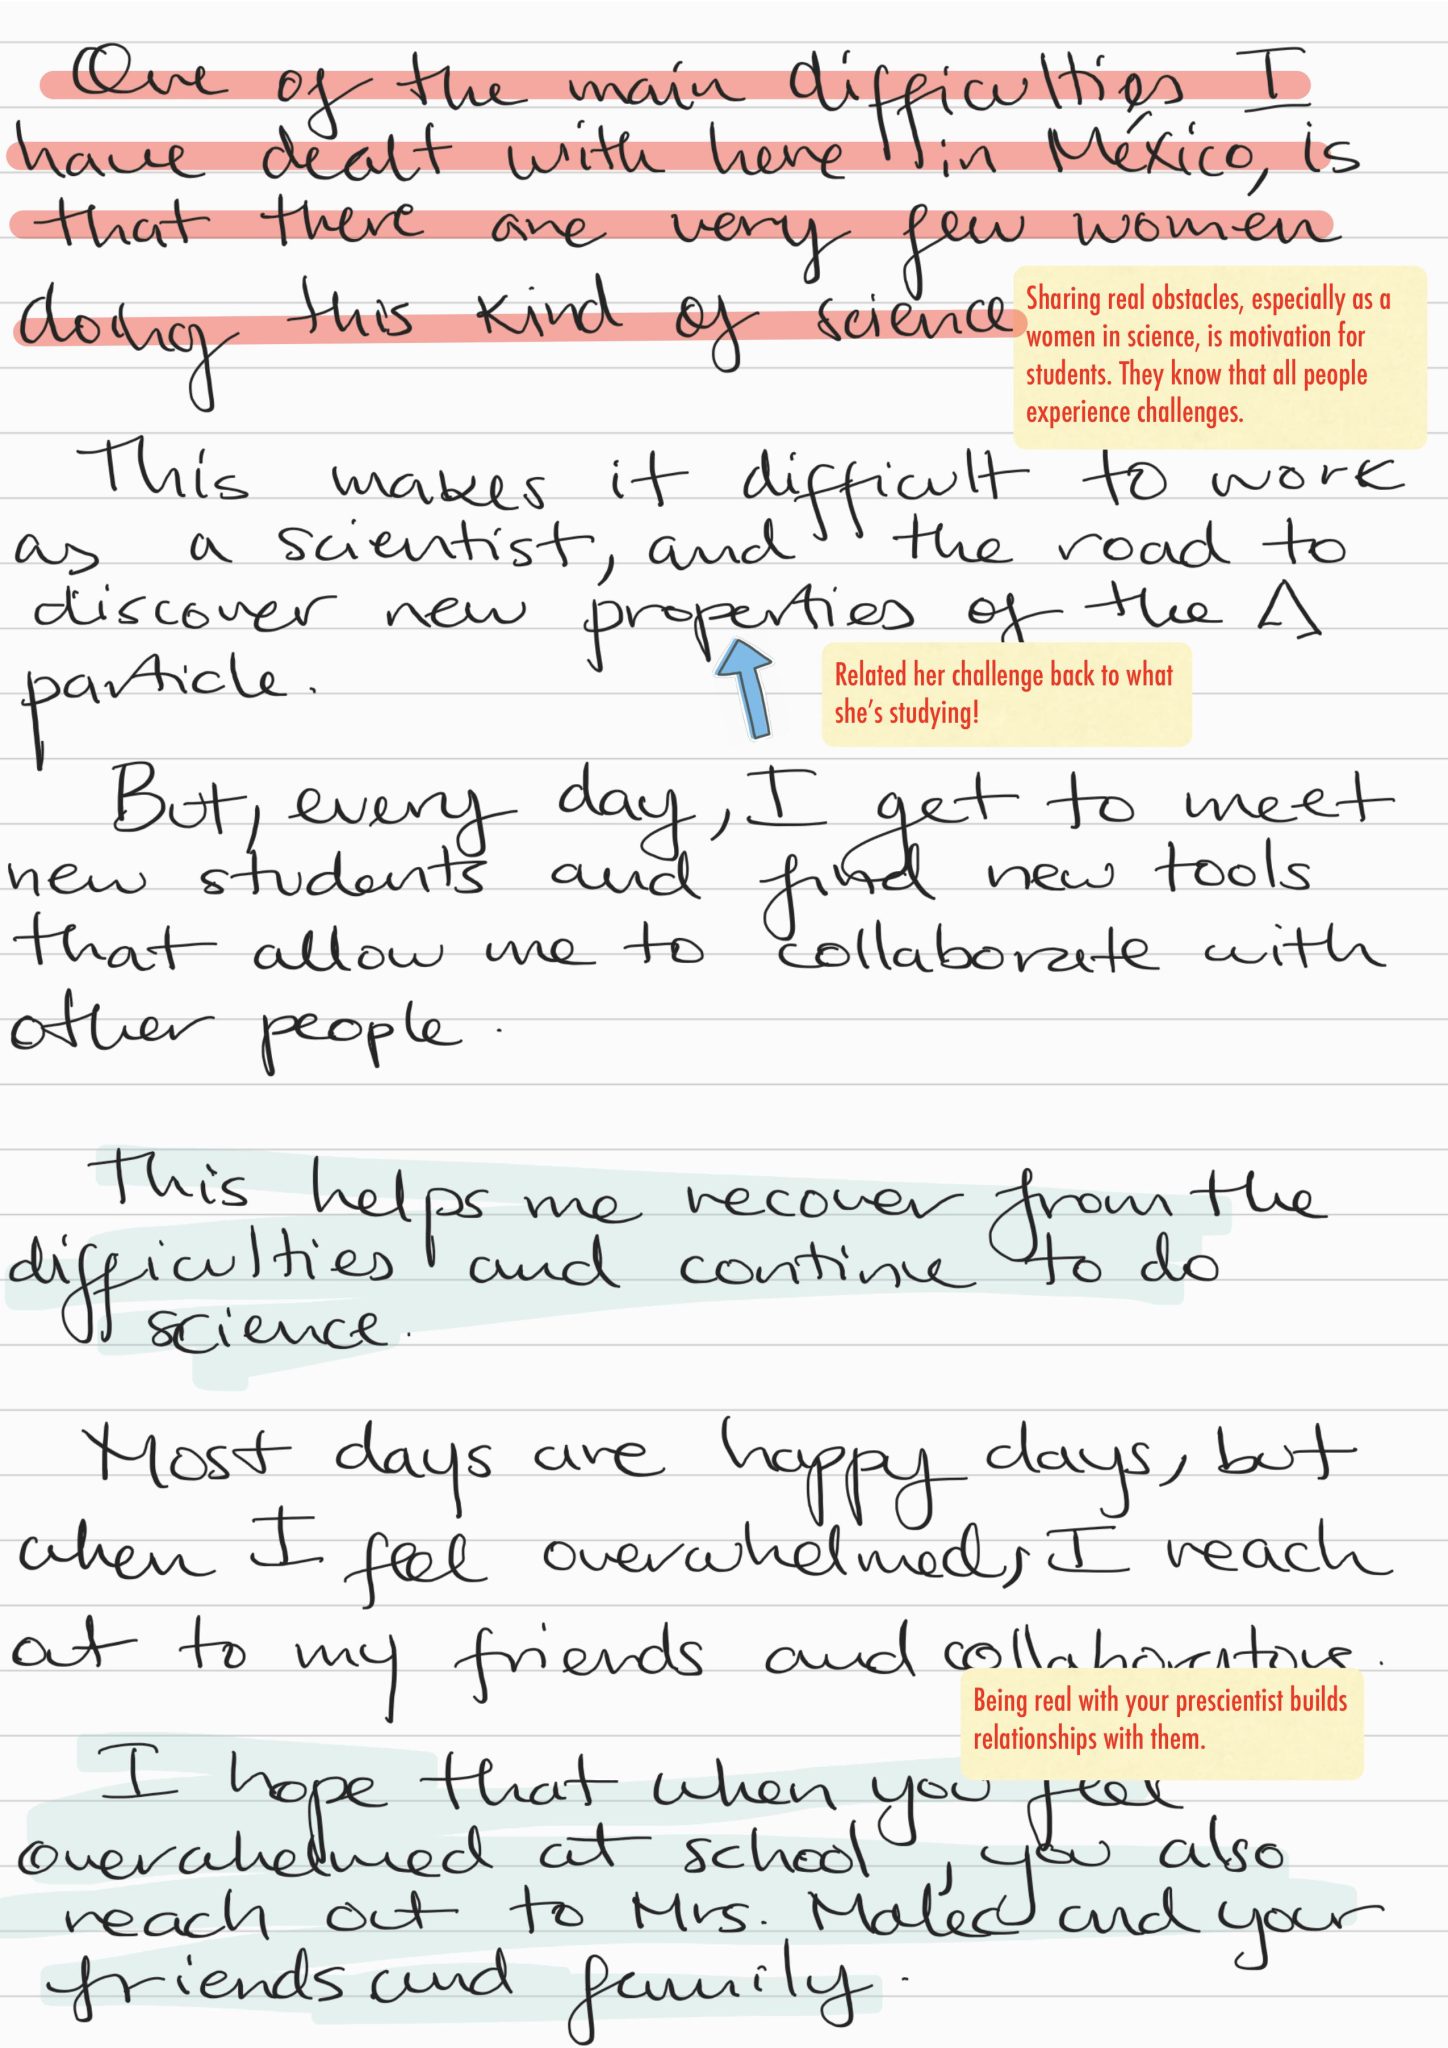 One of the main difficulties I
have dealt with here in México, is
that there are very few women
doing this kind of science
Sharing real obstacles, especially as a
women in science, is motivation for
students. They know that all people
experience challenges.
This makes it difficult to work
as a scientist, and the road to
discover new properties of the Δ
particle.
Related her challenge back to what
she's studying!
But, every day, I get to meet
new students and find new tools
that allow me to collaborate with
other people.
This helps me recover from the
difficulties and continue to do
science.
Most days are happy days, but
when I feel overwhelmed, I reach
out to my friends and collaborators.
Being real with your prescientist builds
relationships with them.
I hope that when you feel
overwhelmed at school, you also
reach out to Mrs. and your
friends and family.